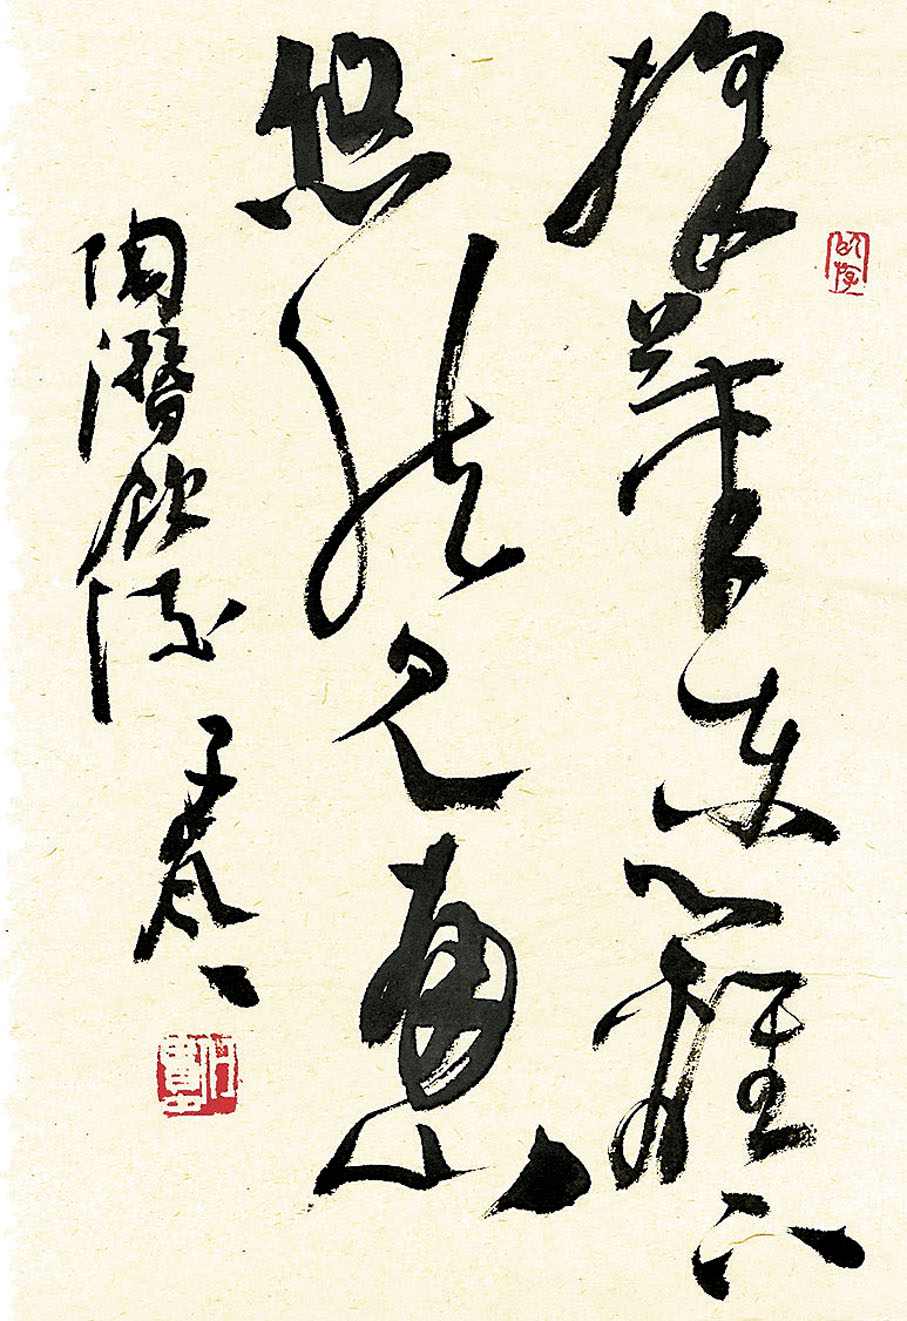 採菊東籬下
悠然見南山
陶潛飲酒